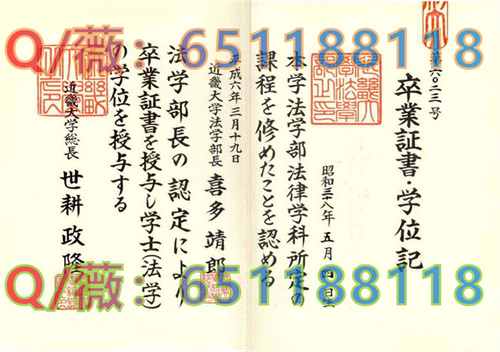 Q/薇: 651188118
第六〇二三号
卒業証書・学位記
昭和三十八年五月四日生
本学法学部法律学科所定の
課程を修めたことを認める
平成六年三月十九日
近畿大学法学部長 喜多靖郎
法学部長の認定により
卒業証書を授与し学士(法学)
の学位を授与する
近畿大学総長 世耕政隆
Q/薇: 651188118
Q/薇: 651188118